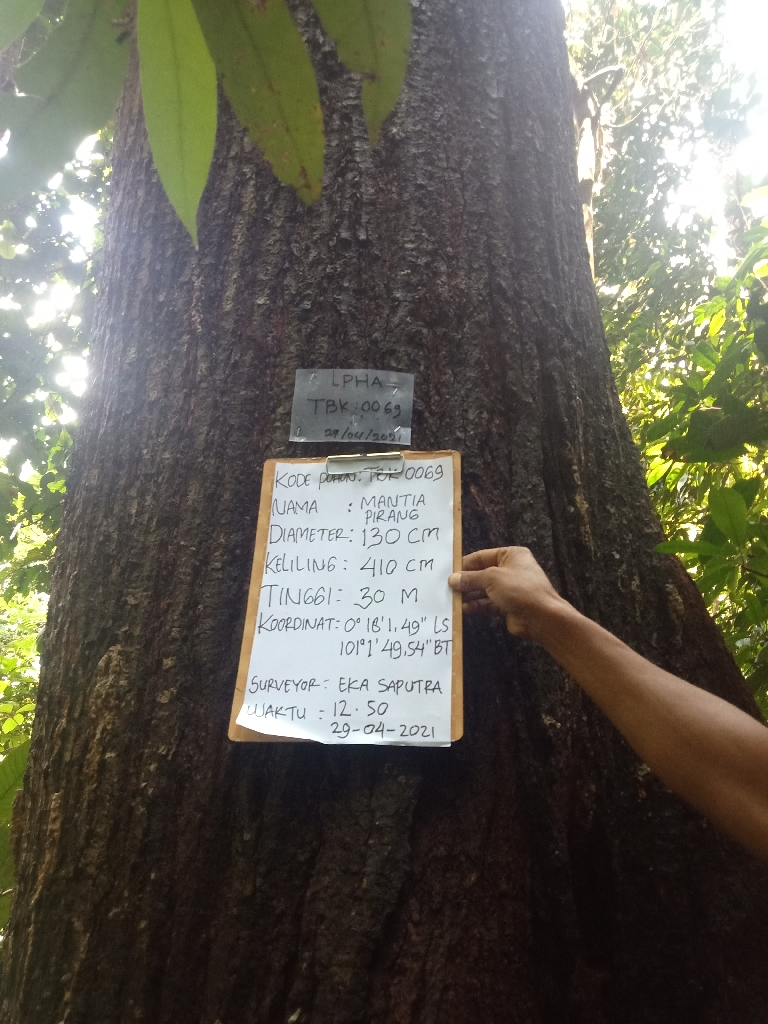 LPHA
TBK:0069
29/04/2021
KODE POHON: TBK 0069
NAMA : MANTIA
PIRANG
DIAMETER: 130 CM
KELILING: 410 CM
TINGGI: 30 M
KOORDINAT: 0° 18'1,49" LS
101°1'49,54" BT
SURVEYOR: EKA SAPUTRA
WAKTU : 12.50
29-04-2021